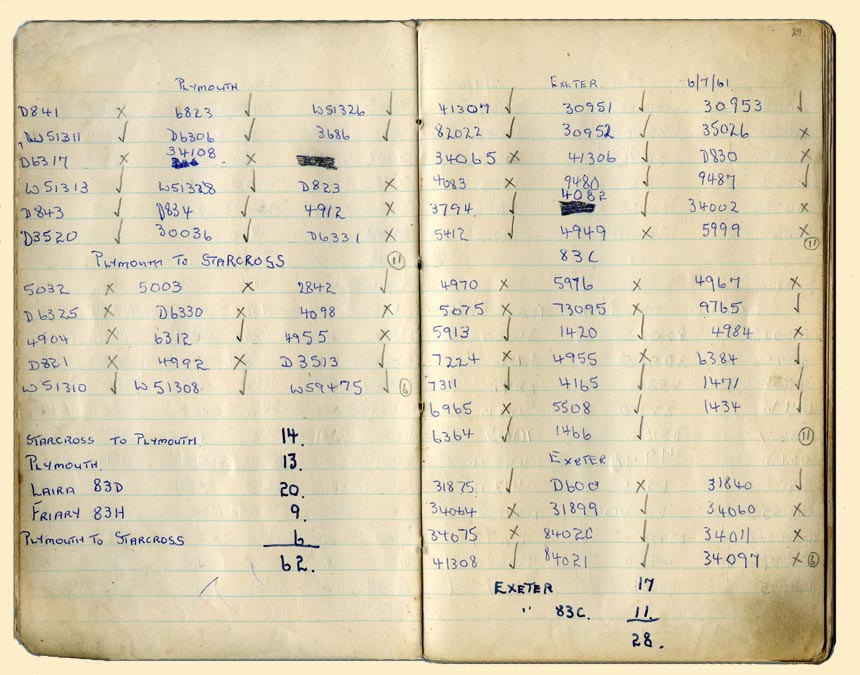 PLYMOUTH
D841 × 6823 ✓ W51326 ✓
W51311 ✓ D6306 ✓ 3686 ✓
D6317 × 34108 ×
W51313 ✓ W51328 ✓ D823 ×
D843 ✓ D834 ✓ 4912 ×
D3520 ✓ 30036 ✓ D6331 ×
PLYMOUTH TO STARCROSS 11
5032 × 5003 × 2842 ✓
D6325 × D6330 × 4098 ×
4904 × 6312 ✓ 4955 ×
D821 × 4992 × D3513 ✓
W51310 ✓ W51308 ✓ W59475 ✓ 6
STARCROSS TO PLYMOUTH 14.
PLYMOUTH. 13.
LAIRA 83D 20.
FRIARY 83H 9.
PLYMOUTH TO STARCROSS 6
62.
29
EXETER. 6/7/61.
41307 ✓ 30951 ✓ 30953 ✓
82022 ✓ 30952 ✓ 35026 ×
34065 × 41306 ✓ D830 ×
4083 × 9480 ✓ 9487 ✓
3794 ✓ 4082 ✓ 34002 ×
5412 ✓ 4949 × 5999 ×
11
83C
4970 × 5976 × 4967 ×
5075 × 73095 × 9765 ✓
5913 ✓ 1420 ✓ 4984 ×
7224 × 4955 × 6384 ✓
7311 ✓ 4165 ✓ 1471 ✓
6965 × 5508 ✓ 1434 ✓
6364 ✓ 1466 ✓ 11
EXETER
31875 ✓ D600 × 31840 ✓
34064 × 31899 ✓ 34060 ×
34075 × 84020 ✓ 34011 ×
41308 ✓ 84021 ✓ 34097 × 6
EXETER 17
" 83C. 11.
28.